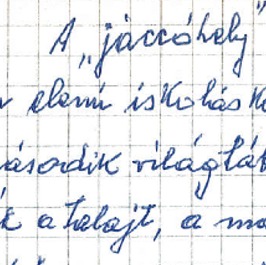 A „jáccóhely"
elemi iskolás
második világ
a talajt, a